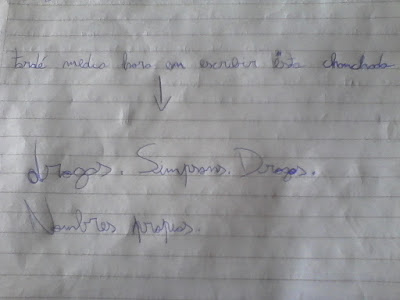 tardé media hora en escribir ésta chanchada
drogas. Simpsons. Drogas.
Nombres propios.